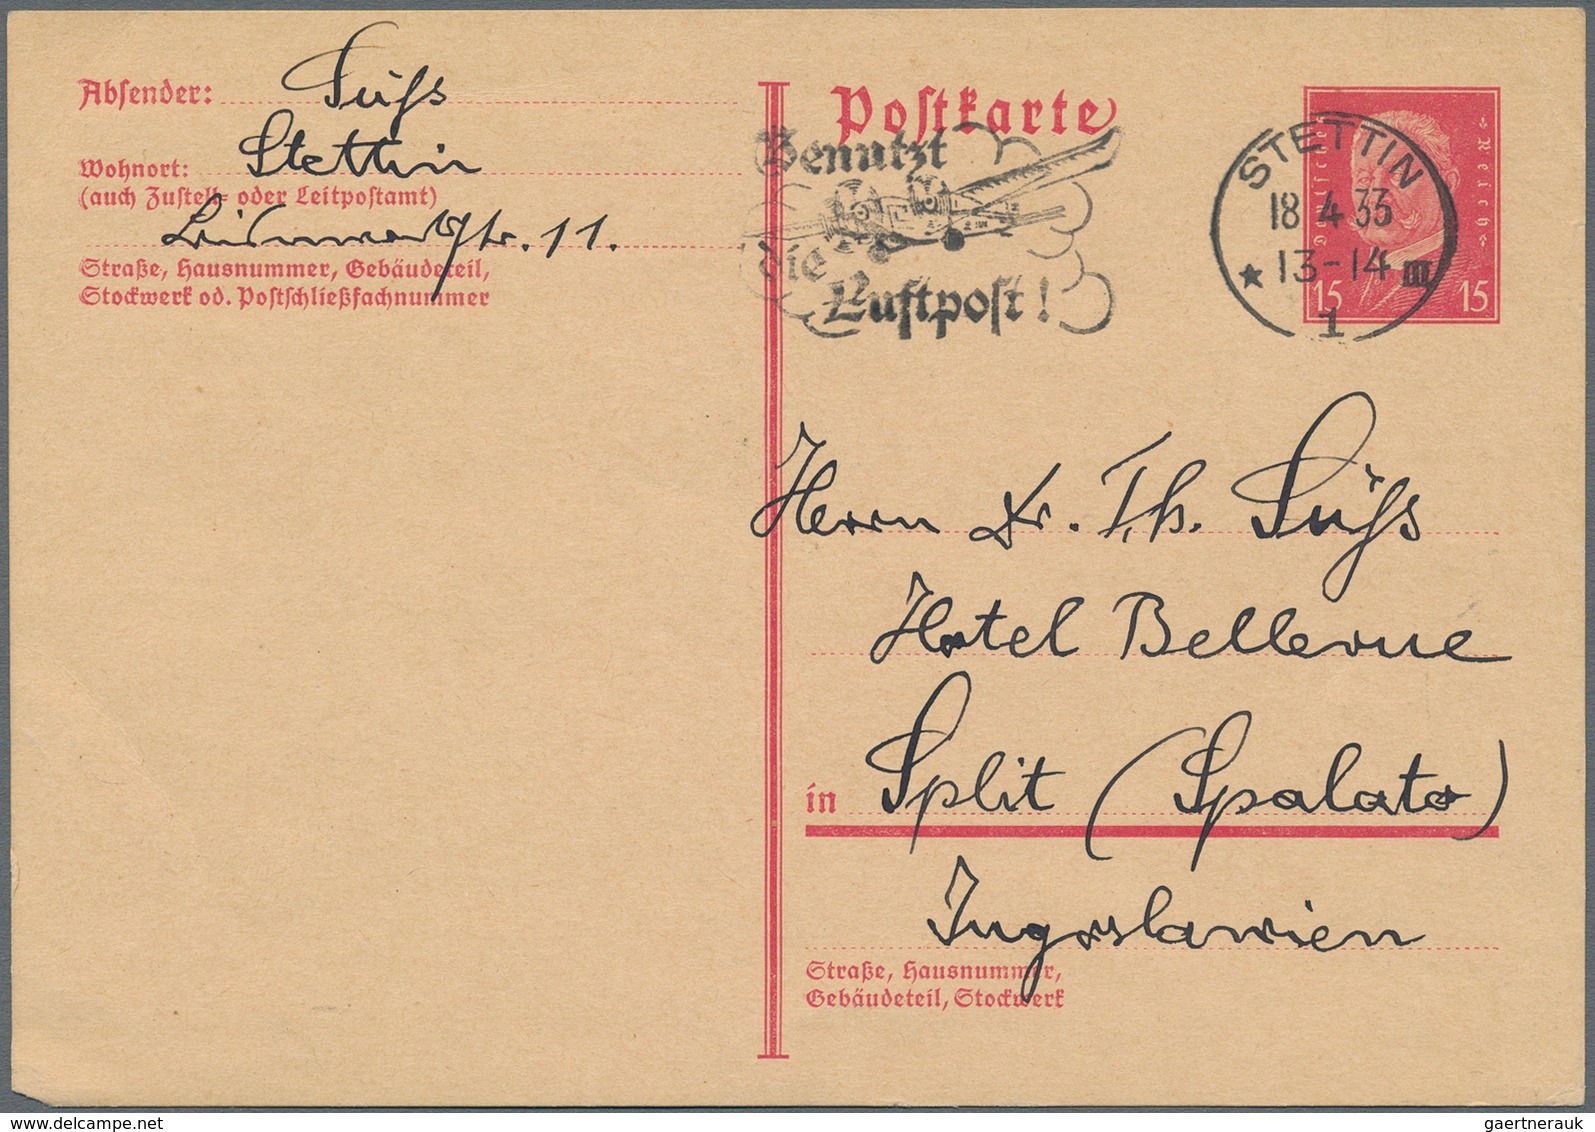 Absender: Süß
Stettin
Wohnort:
(auch Zustell- oder Leitpostamt)
str. 11.
Straße, Hausnummer, Gebäudeteil,
Stockwerk od. Postschließfachnummer
Postkarte
Benutzt
die
Luftpost!
Deutsches Reich
15 15
STETTIN
18 4 33
13-14 m
* 1
Herrn Dr. Th. Süß
Hotel Bellevue
in Split (Spalato)
Jugoslawien
Straße, Hausnummer,
Gebäudeteil, Stockwerk
delcampe.net
gaertnerauk